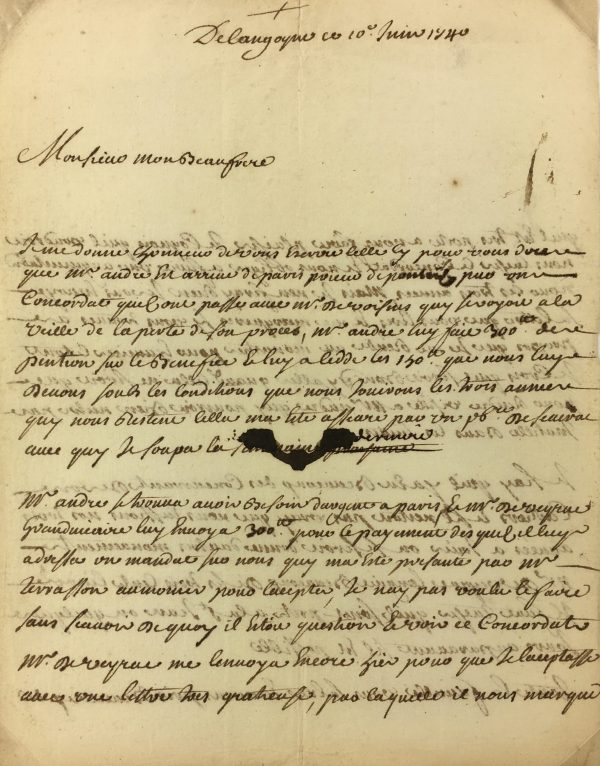 De langogne ce 10e Juin 1740
Monsieur mon Beaufrere
Je me donne lhonneur de vous Escrire celle cy pour vous dire
que mr. andré Est arrivé de paris pourvu de par un
Concordat quil ont passé avec mr. De voisins quy se voyoit a la
veille de la perte de son procès, mr. andre luy fait 300tt de
pention sur le Benefice et luy a cedde les 150tt que nous luy
Devons soubs les conditions que nous Jouirons les trois années
quy nous restent cella ma été assuré par un pbre De
avec quy Je soupa la semaine derniere
Mr. andre se trouva avoir Besoin dargent a paris, Et Mr. De veyrac
Grandvicaire luy Envoya 300tt pour le payement desquels il luy
adressa un mandat sur nous quy ma été presanté par mr
terrasson aumonier pour laccepter, Je nay pas voulu le faire
sans scavoir De quoy il étoit question Et voir ce Concordat
Mr. De veyrac me lenvoya Encore hier pour que Je lacceptasse
avec une lettre tres gratieuse, par laquelle il nous marque